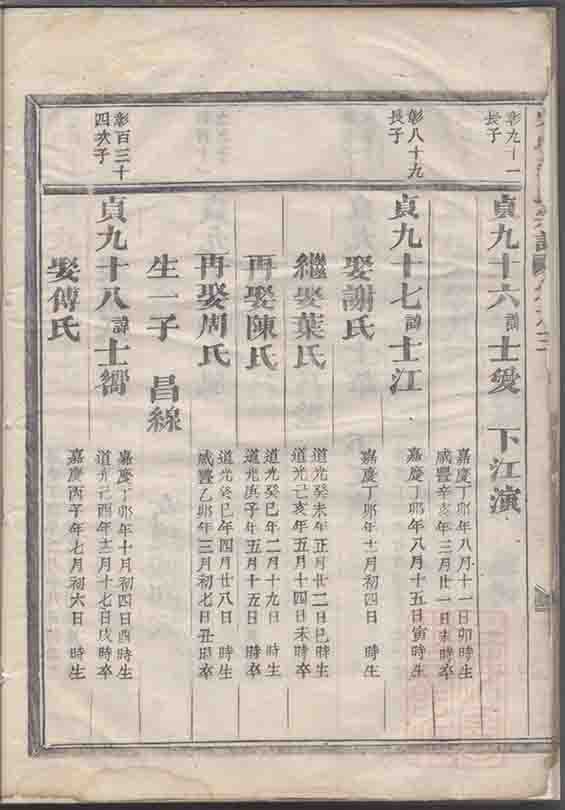 彰九十一
長子
貞九十六諱士愛 下江演
嘉慶丁卯年八月十一日卯時生
咸豐辛亥年三月廿一日未時卒
彰八十九
長子
貞九十七諱士江
嘉慶丁卯年八月十五日寅時生
娶謝氏
嘉慶丁卯年十一月初四日 時生
繼娶葉氏
道光癸未年正月廿二日巳時生
道光己亥年五月十四日未時卒
再娶陳氏
道光癸巳年二月十九日 時生
道光庚子年五月十五日 時卒
再娶周氏
道光癸巳年四月廿八日 時生
咸豐乙卯年三月初七日丑時卒
生一子 昌線
彰百三十
四次子
貞九十八諱士鄉
嘉慶丁卯年十月初四日酉時生
道光己酉年十二月十七日戌時卒
娶傅氏
嘉慶丙子年七月初六日 時生